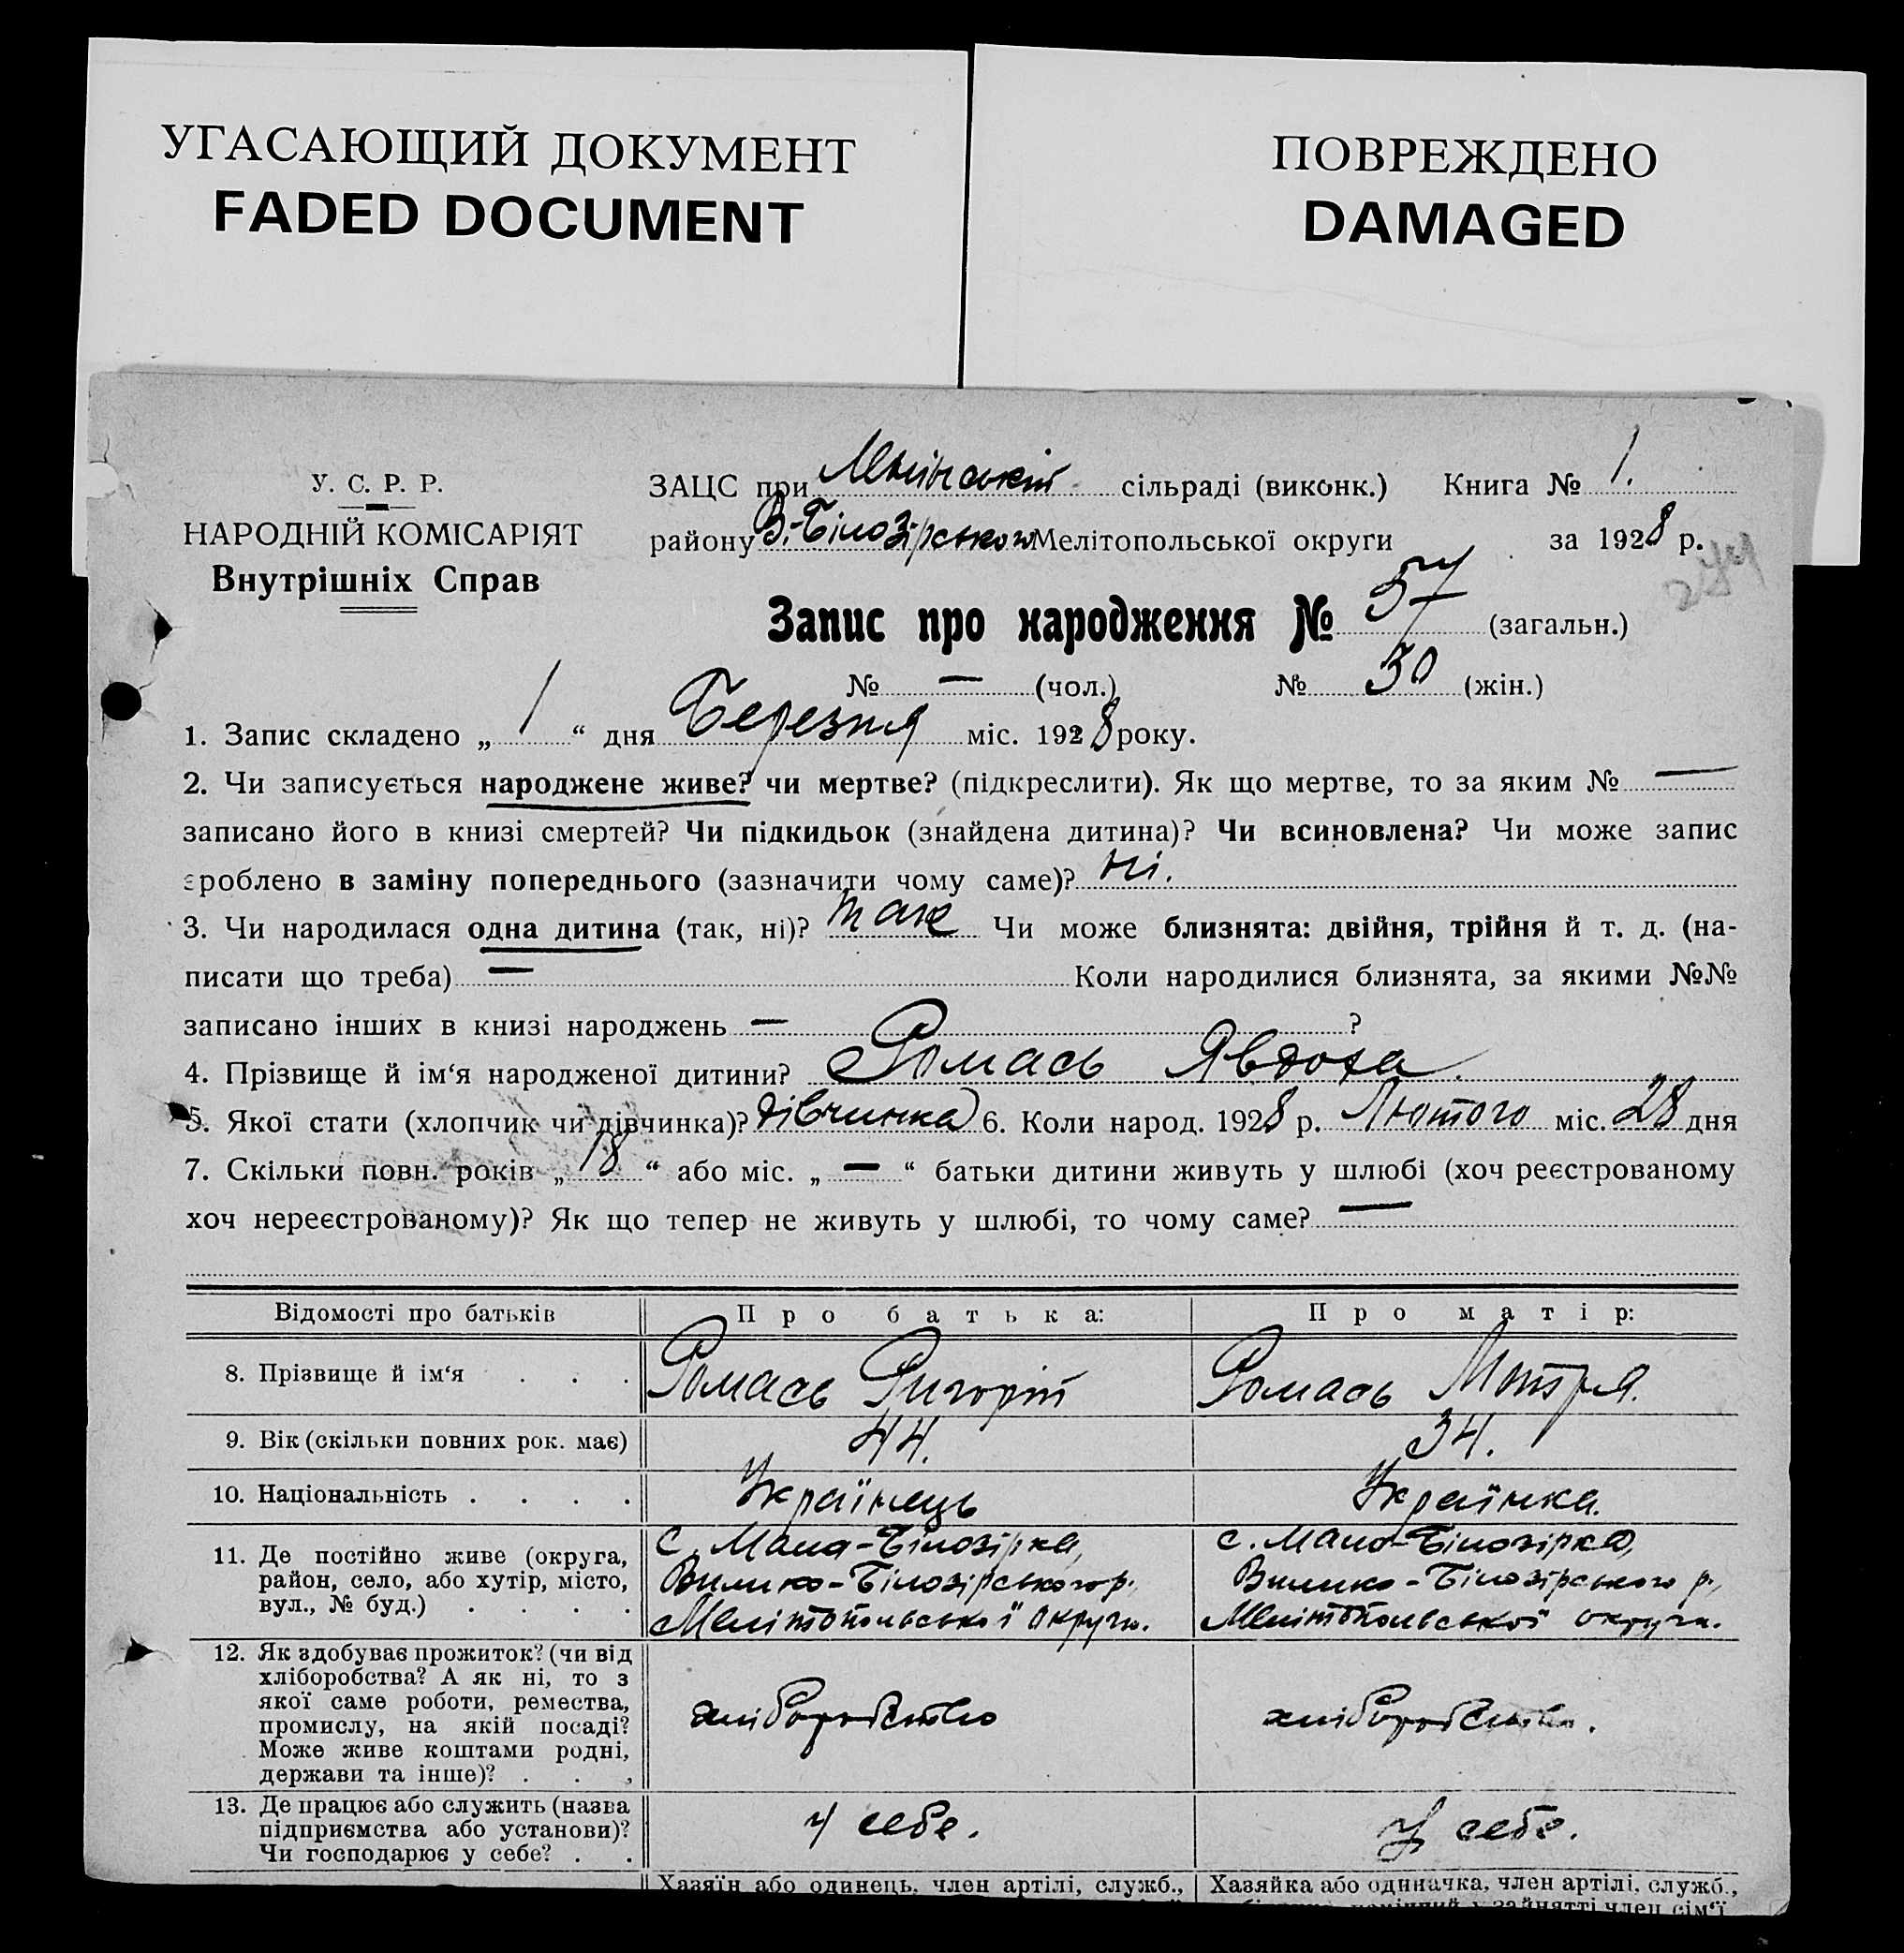 УГАСАЮЩИЙ ДОКУМЕНТ
FADED DOCUMENT
ПОВРЕЖДЕНО
DAMAGED
У. С. Р. Р.
НАРОДНІЙ КОМІСАРІЯТ
Внутрішніх Справ
ЗАЦС при сільраді (виконк.) Книга № 1.
району В.-Білозірського Мелітопольської округи за 1928 р.
Запис про народження № 57 (загальн.)
№ — (чол.) № 30 (жін.)
1. Запис складено „ 1 “ дня Березня міс. 1928 року.
2. Чи записується народжене живе? чи мертве? (підкреслити). Як що мертве, то за яким № —
записано його в книзі смертей? Чи підкидьок (знайдена дитина)? Чи всиновлена? Чи може запис
зроблено в заміну попереднього (зазначити чому саме)? Ні.
3. Чи народилася одна дитина (так, ні)? так Чи може близнята: двійня, трійня й т. д. (на-
писати що треба) — Коли народилися близнята, за якими №№
записано інших в книзі народжень — ?
4. Прізвище й ім‘я народженої дитини? Ромась Явдоха.
5. Якої стати (хлопчик чи дівчинка)? дівчинка 6. Коли народ. 1928 р. Лютого міс. 28 дня
7. Скільки повн. років „ 18 “ або міс. „ — “ батьки дитини живуть у шлюбі (хоч реєстрованому
хоч нереєстрованому)? Як що тепер не живуть у шлюбі, то чому саме? —
Відомості про батьків
Про батька:
Про матір:
8. Прізвище й ім‘я . . .
Ромась Григорій
Ромась Мотря.
9. Вік (скільки повних рок. має)
44.
34.
10. Національність . . . .
Українець
Українка.
11. Де постійно живе (округа,
район, село, або хутір, місто,
вул., № буд.) . . . .
с. Мала-Білозірка,
Велико-Білозірського р.,
Мелітопольської округи.
с. Мало-Білозірка,
Велико-Білозірського р.,
Мелітопольської округи.
12. Як здобуває прожиток? (чи від
хліборобства? А як ні, то з
якої саме роботи, ремества,
промислу, на якій посаді?
Може живе коштами родні,
держави та інше)? . . ,
хліборобство
хліборобство.
13. Де працює або служить (назва
підприємства або установи)?
Чи господарює у себе? . .
у себе.
у себе.
Хазяїн або одинець, член артілі, служб.,
Хазяйка або одиначка, член артілі, служб.,